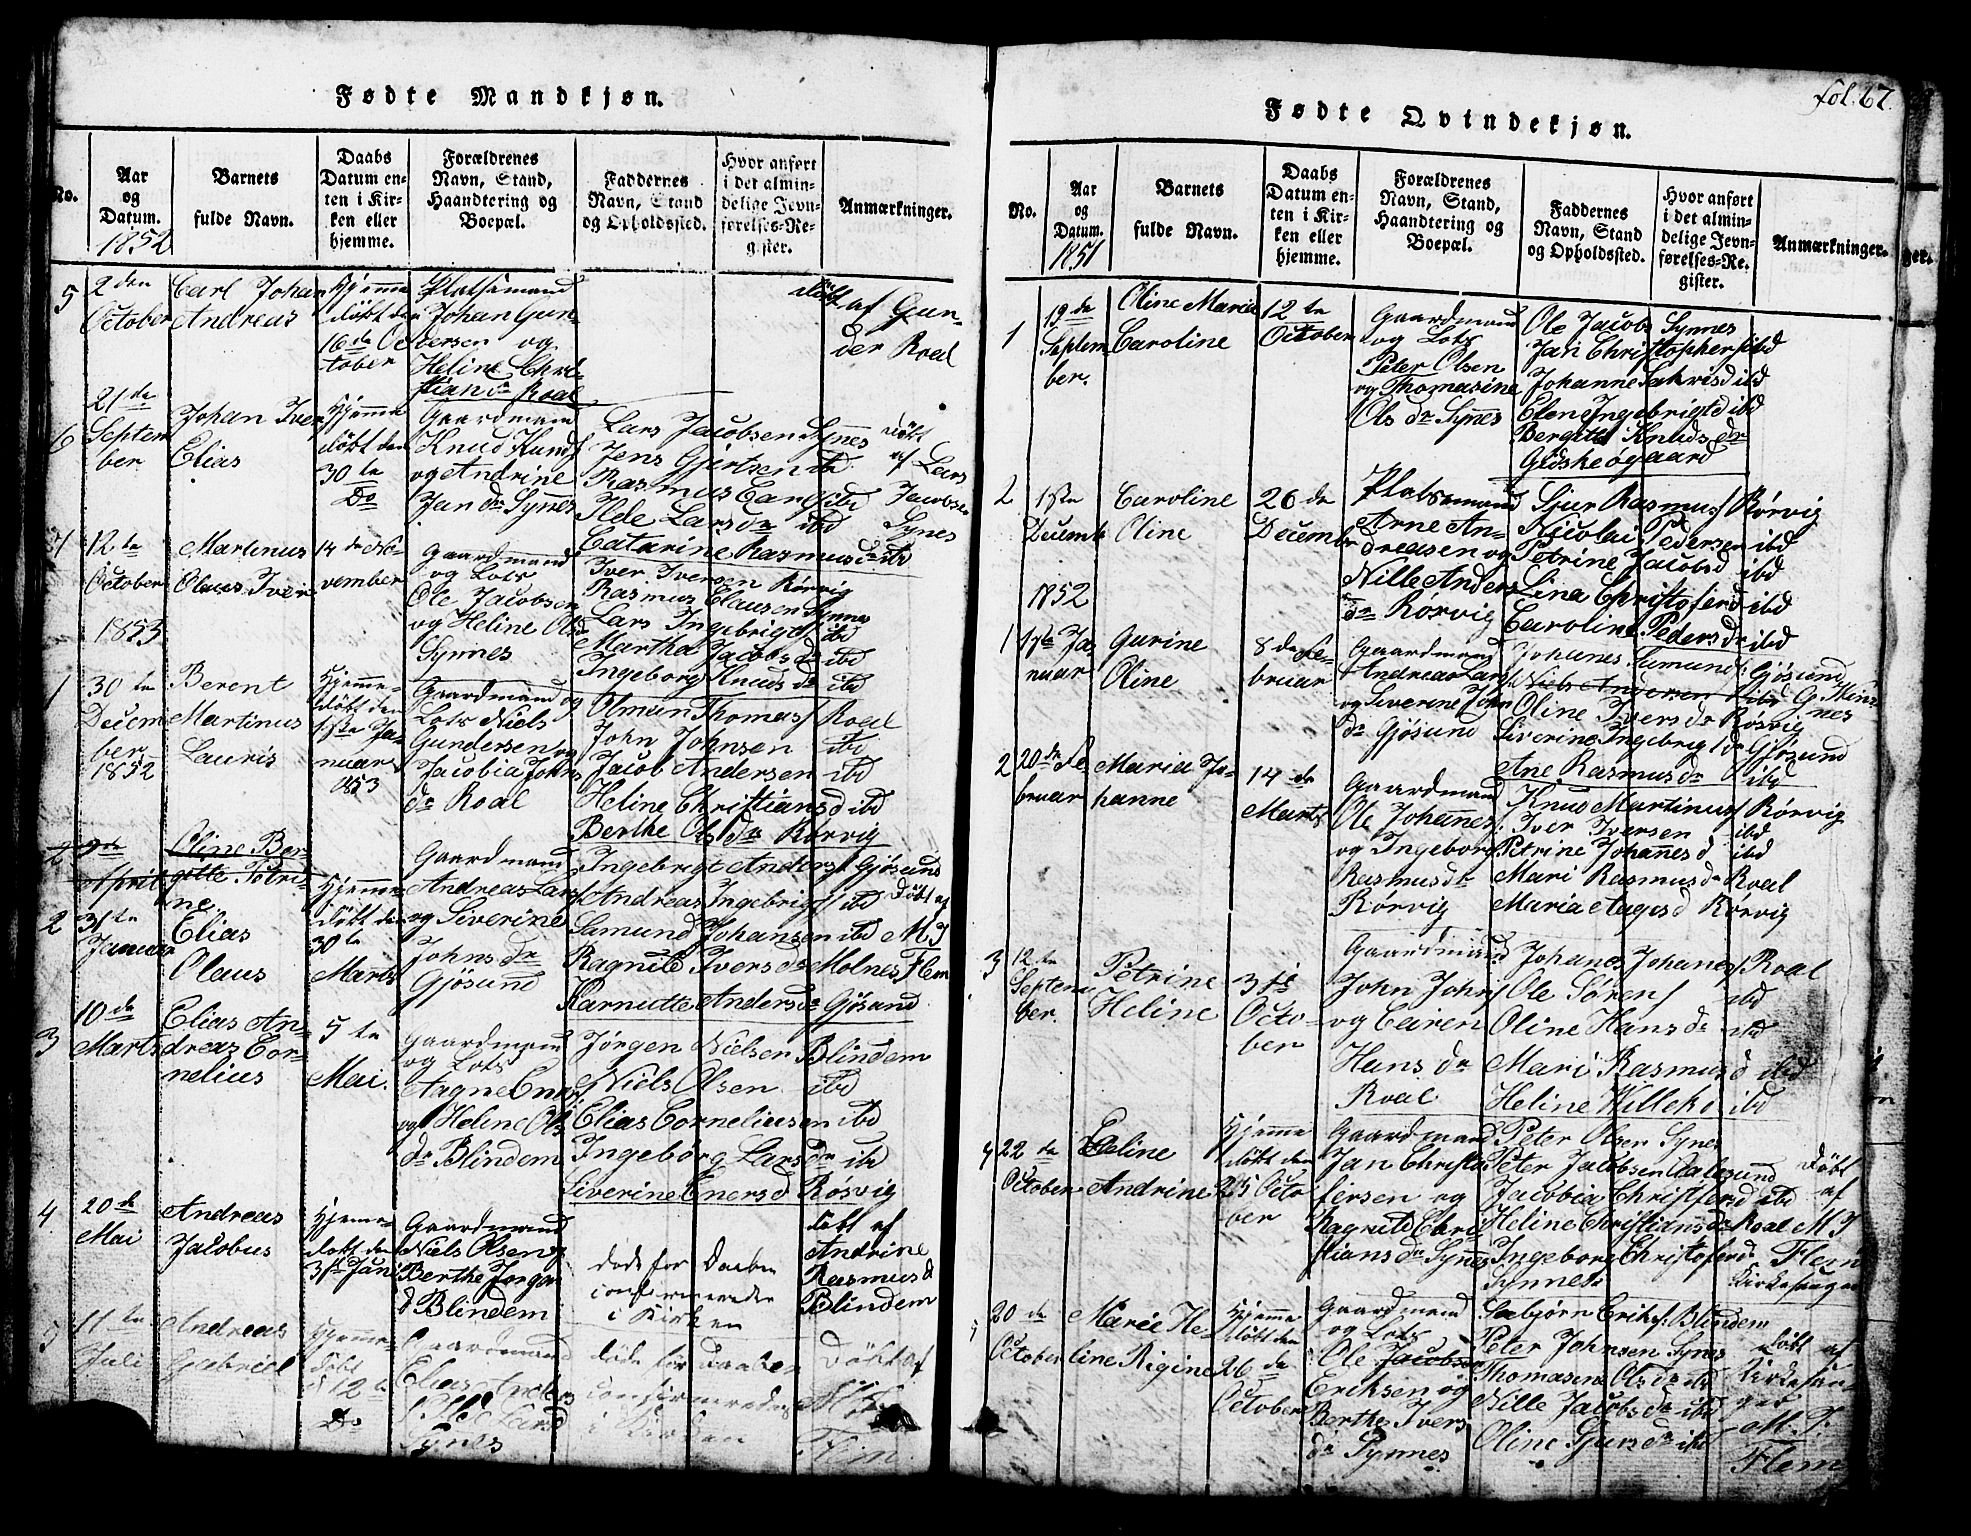 Fødte Mandkjøn.
No.
Aar og Datum.
1852
Barnets fulde Navn.
Daabs Datum enten i Kirken eller hjemme.
Forældrenes Navn, Stand, Haandtering og Boepæl.
Faddernes Navn, Stand og Opholdssted.
Hvor anført i det almindelige Jevnførelses-Register.
Anmærkninger.
5
2den
October
Carl Johan
Andreas
Hjemme
døbt den
16de Oc-
tober
Platsmand
Johan Gun-
dersen og
Heline Chri-
stians dr Roal
døbt af Gun-
der Roal
6
21de
Septem
ber
Johan Iver
Elias
Hjemme
døbt den
30te
Do
Gaardmand
Knud Knuds
og Andrine
Jan dr Synes
Lars Jacobsen Synes
Jens Gjertsen ibd
Rasmus Carls ibd
Ilde Lars dr ibd
Catarine Rasmus dr ibd
Døbt
af Lars
Jacobsen
Synes
7
12te
October
Martinus
Olaus Iver
14de No-
vember
Gaardmand
og Lots
Ole Jacobsen
og Heline Ols dr
Synnes
Iver Iversen Rørvig
Rasmus Clausen Synnes
Lars Ingebrigts ibd
Martha Jacobs dr ibd
Ingeborg Knuds dr ibd
1853
1
30te
Decem
ber
1852
Berent
Martinus
Lauris
Hjemme-
døbt den
1ste Ja-
nuar
1853
Gaardmand og
Lots Niels
Gundersen og
Jacobia Johns
dr Roal
Olman Thomas/ Roal
John Johnsen ibd
Jacob Andersen ibd
Heline Christians d ibd
Berthe Ols dr Rørvig
2
9de
April
Oline Ber-
gitte Petri-
ne
2
31te
Januar
Elias
Olaus
Hjemme
døbt den
30te
Marts
Gaardmand
Andreas Lars/
og Siverine
Johns dr
Gjøsund
Ingebrigt Anders/ Gjøsund
Andreas Ingebrigs/ ibd
Samund Johansen ibd
Ragnild Ivers dr Molnes
Karnidte Anders dr Gjøsund
Døbt af
M J
Flem
3
10de
Marts
Elias An-
dreas Cor-
nelius
5te
Mai.
Gaardmand
og Lots
Aagne
og Heline Ols
dr Blindem
Jørgen Nielsen Blindem
Niels Olsen ibd
Elias Corneliusen ibd
Ingebørg Lars dr ibd
Siverine Eners d Rösvig
4
20de
Mai
Andreas
Jacobus
Hjemme-
døbt den
31te Juni
Gaardmand
Niels Olsen og
Berthe Jørgens
d Blindem
døde før Daaben
confirmeredes
i Kirken
døbt af
Andrine
Rasmus d
Blindem
5
11te
Juli
Andreas
Gabriel
Hjemme-
døbt
d 12te
Do
Gaardmand
Elias
Lars d
Synes
døde før Daaben
confirmeredes
i Kirken
Døbt af
Flem
fol. 67.
Fødte Qvindekjøn.
No.
Aar og Datum.
1851
Barnets fulde Navn.
Daabs Datum enten i Kirken eller hjemme.
Forældrenes Navn, Stand, Haandtering og Boepæl.
Faddernes Navn, Stand og Opholdssted.
Hvor anført i det almindelige Jevnførelses-Register.
Anmærkninger.
ger.
1
19de
Septem
ber.
Oline Marie
Caroline
12te
October
Gaardmand
og Lots
Peter Olsen
og Thomasine
Ols dr Synes
Ole Jacobs Synnes
Jan Christophers ibd
Johanne Sakris d ibd
Elene Ingebrigt d ibd
Bergitte Knuds dr
Gidskeøgaard
2
1ste
Decemb
Caroline
Oline
26de
Decemb
Platsmand
Arne An-
dreasen og
Nille Anders
dr Rørvig
Sjur Rasmus/ Rørvig
Nicolai Pedersen ibd
Petrine Jacobs d ibd
Lina Christofer d ibd
Caroline Peders dr ibd
1852
1
1ste Ja
nuar
Gurine
Oline
8de Fe-
bruar
Gaardmand
Andreas Lars/
og Siverine John
dr Gjøsund
Johanes Samund/ Gjøsund
Niels Andersen ibd
Oline Ivers dr Røsvig
Siverine Ingebrigt dr Gjøsund
Ane Rasmus dr ibd
2
20de Fe
bruar
Maria Jo-
hanne
14de
Marts
Gaardmand
Ole Johanes/
og Ingeborg
Rasmus dr
Rørvig
Knud Martinus/ Rørvig
Iver Iversen ibd
Petrine Johanes d ibd
Mari Rasmus dr Roal
Maria Aages d Rørvig
3
12te
Septem
ber.
Petrine
Heline
3die
Octo-
ber
Gaardmand
John Johns/
og Caren
Hans dr
Roal
Johanes Johanes/ Roal
Ole Sørens/ ibd
Oline Hans dr ibd
Mari Rasmus d ibd
Heline Willeks ibd
4
22de
October
Eeline
Andrine
Hjemme
døbt den
25 Octo
ber
Gaardmand
Jan Christo
fersen og
Ragnild Chri-
stians dr Synes
Peter Olsen Synes
Peter Jacobsen Aalesund
Jacobia Christofer d ibd
Heline Christians dr Roal
Ingeborg Christofer d
Synnes
Døbt
af
M J
Flem
Kirkesanger
5
20de
October
Marie He
line Rigine
Hjemme
døbt den
26de
October
Gaardmand
og Lots
Ole Jacobsen
Eriksen og
Berthe Ivers
dr Synnes
Sabjørn Eriks/ Blindem
Peter Johnsen Synes
Thomasine Ols dr ibd
Nille Jacobs dr ibd
Oline Sjurs dr ibd
døbt af
Kirkesan-
ger
M. J.
Flem